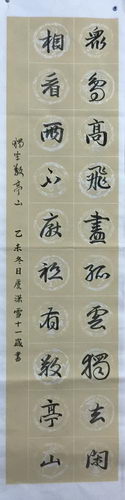 衆鳥高飛盡孤雲獨去閑
相看兩不厭祗有敬亭山
獨坐敬亭山 乙未冬日廖潇雪十一歲書